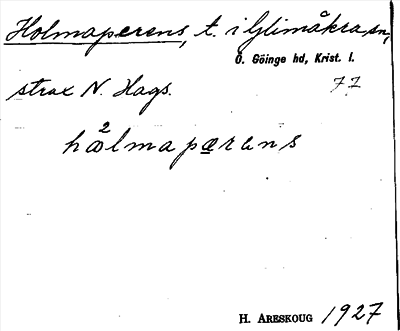 Holmaperens, t. i Glimåkra sn,
Ö. Göinge hd, Krist. l.
strax N. Hags. 77
2
hœlmapærɩns
H. ARESKOUG 1927